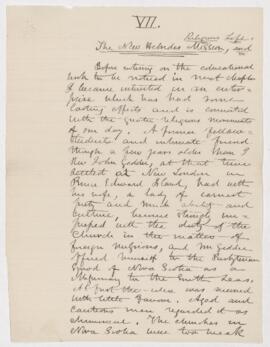 VII.
Religious Life.
The New Hebrides Mission, and
Before entering on the educational
work to be noticed in next chapter
I became interested in an enter-
prise which has had some
lasting effects and is connected
with the greater religious movements
of our day. A former fellow-
student and intimate friend
though a few years older than I
Rev John Geddie, at that time
settled at New London in
Prince Edward Island, had with
his wife, a lady of earnest
piety and much ability and
culture, become strongly im-
pressed with the duty of the
Church in the matter of
foreign missions, and Mr Geddie
offered himself to the Presbyterian
Synod of Nova Scotia as a
Missionary to the South Seas.
At first the idea was received
with little favour. Aged and
cautious men regarded it as
The churches in
Nova Scotia were too weak